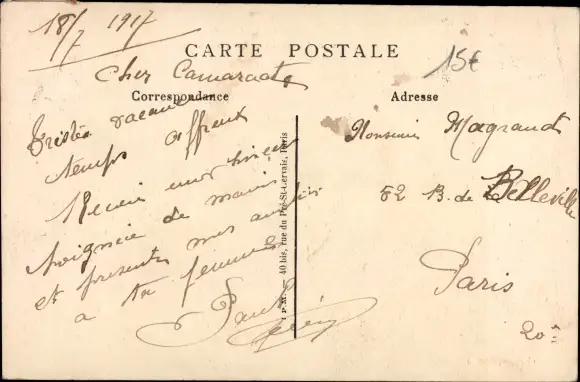 18/7 1917
CARTE POSTALE
15€
Cher Camarade
Correspondance
Adresse
Tristes vacances
temps affreux
Recois une
poignée de mains
et présentes mes amitiés
a ta femme
Paul
I.P.M. — 40 bis, rue du Pré-St-Gervais, Paris
Monsieur Magrand
52 B. de Belleville
Paris
20è